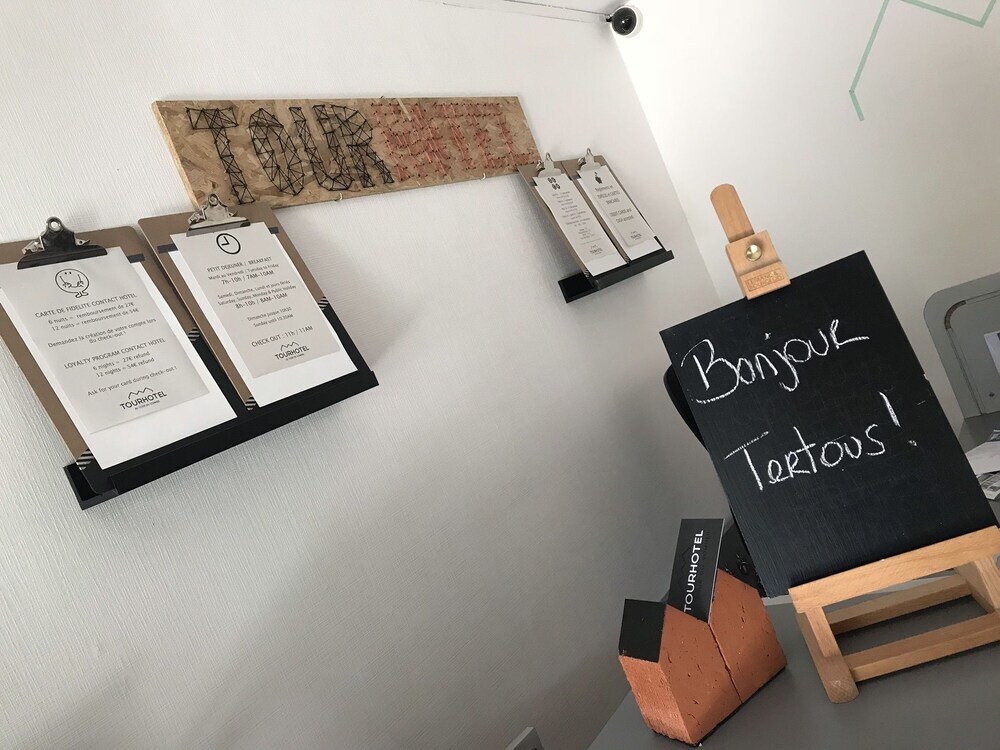 TOURHOTEL
CARTE DE FIDELITE CONTACT HOTEL
6 nuits = remboursement de 27€
12 nuits = remboursement de 54€
Demandez la création de votre compte lors
du check-out !
LOYALTY PROGRAM CONTACT HOTEL
6 nights = 27€ refund
12 nights = 54€ refund
Ask for your card during check-out !
TOURHOTEL
PETIT DEJEUNER / BREAKFAST
Mardi au Vendredi / Tuesday to Friday
7h-10h / 7AM-10AM
Samedi, Dimanche, Lundi et jours fériés
Saturday, Sunday, Monday & Public Holiday
8h-10h / 8AM-10AM
Dimanche jusque 10H30
Sunday until 10.30AM
CHECK OUT : 11h / 11AM
TOURHOTEL
Bonjour
Tertous!
TOURHOTEL